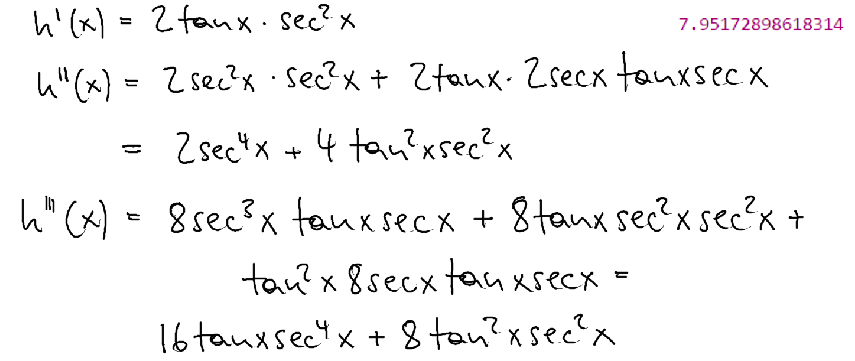 h'(x) = 2tanx · sec²x
7.95172898618314
h''(x) = 2sec²x · sec²x + 2tanx · 2secx tanxsecx
= 2sec⁴x + 4 tan²xsec²x
h'''(x) = 8sec³x tanxsecx + 8tanx sec²x sec²x +
tan²x 8secx tanxsecx =
16tanxsec⁴x + 8tan²xsec²x